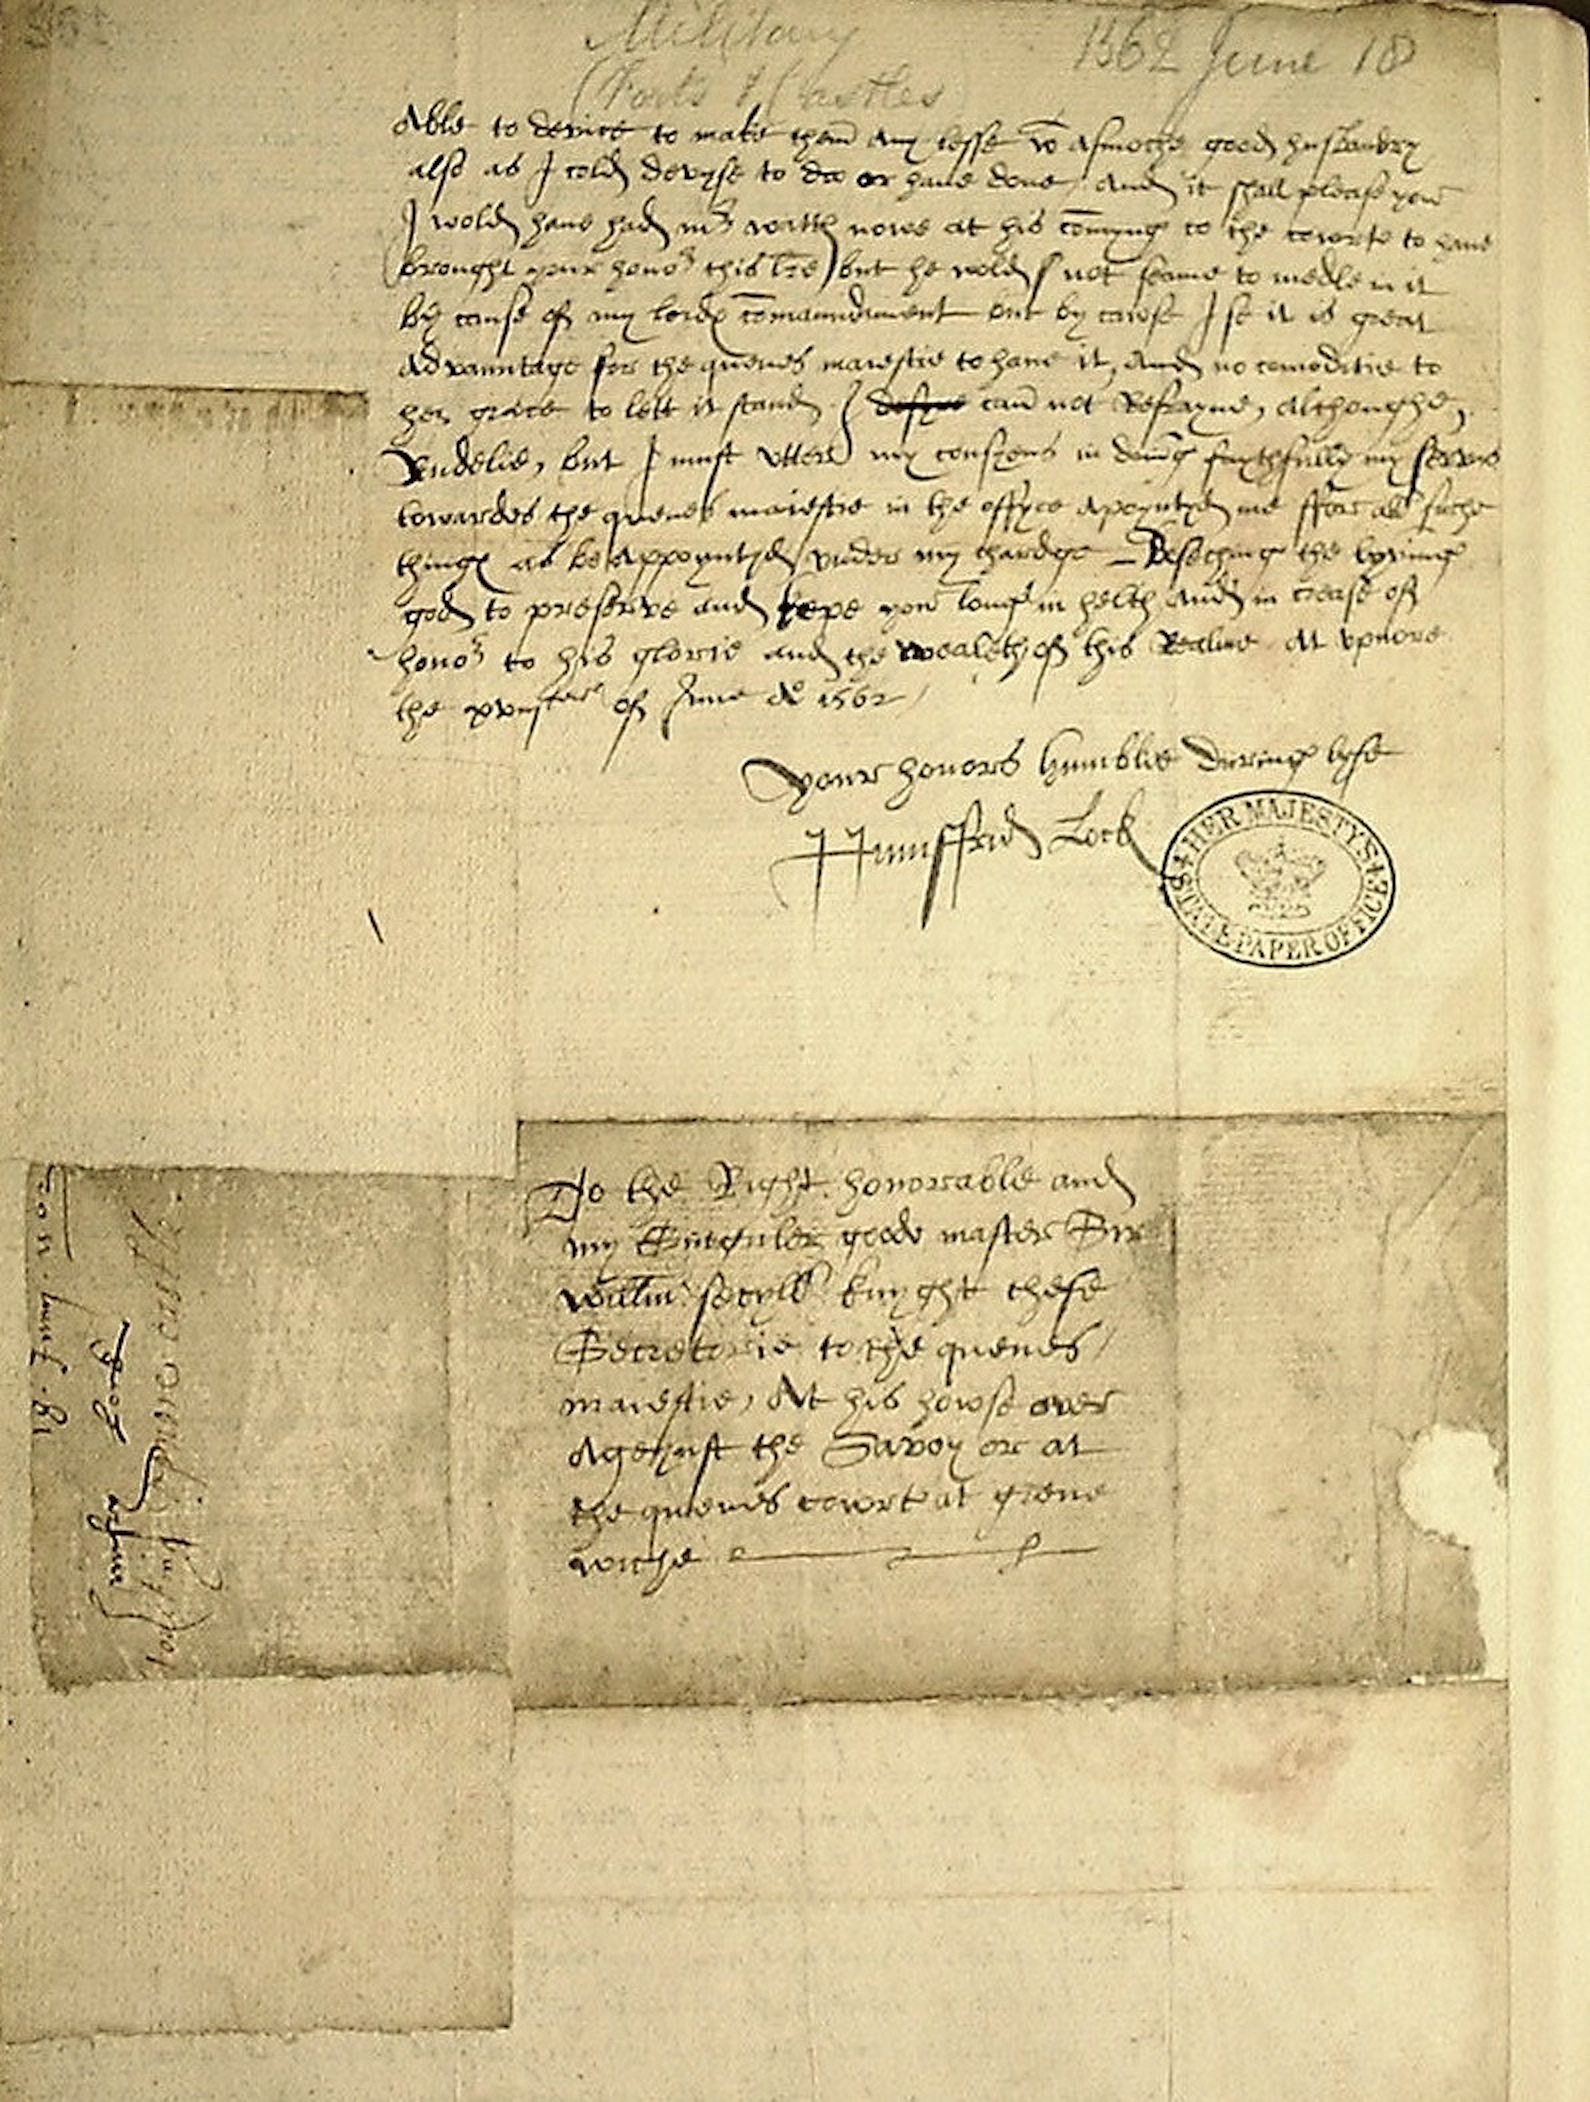 Military 1562 June 18
(Forts & Castles
Able to device to make them any lesse wt asmoche good husbandry
also as I cold devyse to do or have done / And it shall please your
I wold have had mr watts nowe at his comyng to the cowrte to have
brought your honor this lre but he wold not seame to medle in it
by cause of my lordes comaundement but by cawse I se it is great
advauntage for the quenes maiestie to have it, And no comoditie to
her grace to lett it stand I desyre can not Refrayne, althoughe,
Rudelie, but I must utter my consyens in doing faythfullie my servis
towardes the quenes maiestie in the offyce apoynted me ffor all suche
thinges as be appoynted under my chardge – Beseching the lyving
god to preserve and kepe your long in helth and in crease of
honor to his glorie and the wealeth of this Realme At upnore
the xviijth of June Ao 1562 /
Your honors humblie during lyfe
Humffrid Lock
HER MAJESTY'S STATE PAPER OFFICE
To the Right honorable and
my Singuler goode master Sir
Willm secyll knyght chefe
Secretorie to the quenes /
maiestie, At his howse over
Ageynst the Savoy or at
the quenes cowrte at grene
wiche
18 Junij 1562